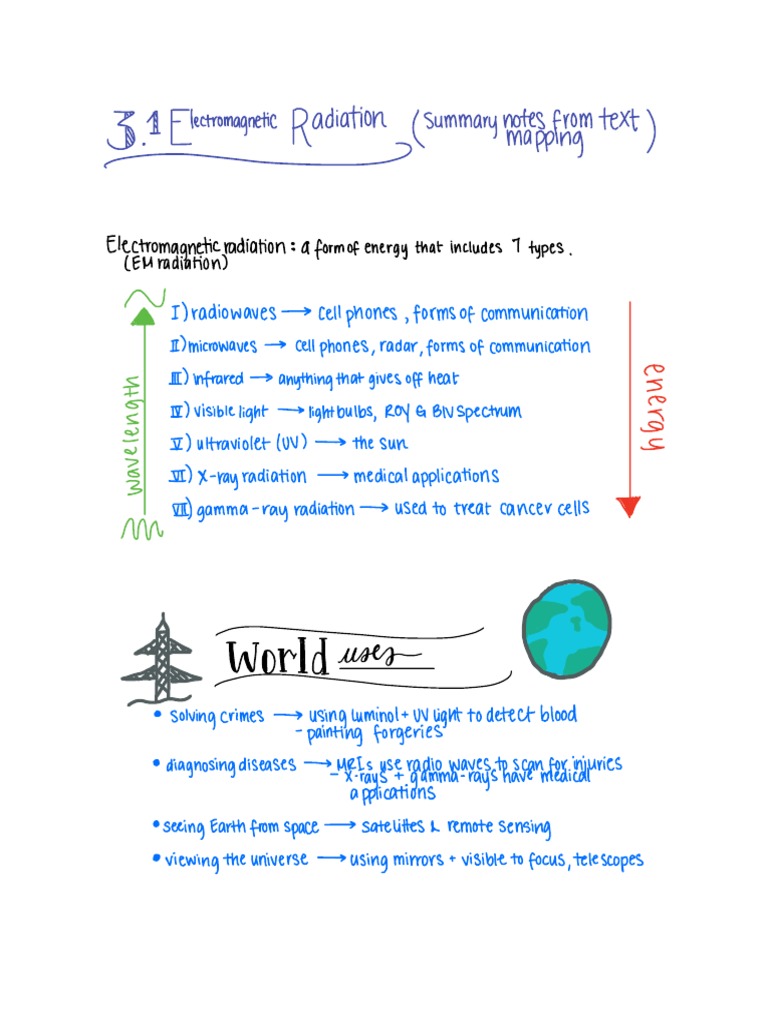 3.1 Electromagnetic Radiation (summary notes from text
mapping)
Electromagnetic radiation: a form of energy that includes 7 types.
(EM radiation)
I) radiowaves → cell phones, forms of communication
II) microwaves → cell phones, radar, forms of communication
III) infrared → anything that gives off heat
IV) visible light → lightbulbs, ROY G BIV spectrum
V) ultraviolet (UV) → the sun
VI) X-ray radiation → medical applications
VII) gamma-ray radiation → used to treat cancer cells
wavelength
energy
World uses
• solving crimes → using luminol + UV light to detect blood
- painting forgeries
• diagnosing diseases → MRIs use radio waves to scan for injuries
- x-rays + gamma-rays have medical
applications
• seeing Earth from space → satellites & remote sensing
• viewing the universe → using mirrors + visible to focus, telescopes